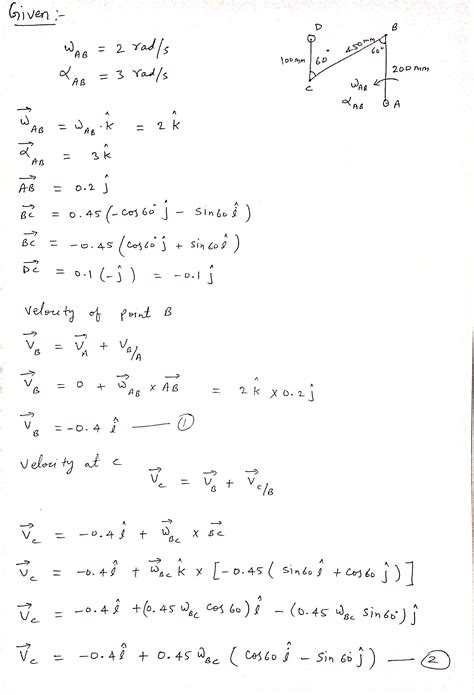 Given :-
D
B
100mm
60°
450mm
60°
200mm
C
ω_AB
α_AB
A
ω_AB = 2 rad/s
α_AB = 3 rad/s
→ω_AB = ω_AB · k̂ = 2 k̂
→α_AB = 3k̂
→AB = 0.2 ĵ
→BC = 0.45 (-cos60° ĵ - sin60 î)
→BC = -0.45 (cos60° ĵ + sin60 î)
→DC = 0.1 (-ĵ) = -0.1 ĵ
velocity of point B
→V_B = →V_A + V_B/A
→V_B = 0 + →ω_AB × →AB = 2 k̂ × 0.2 ĵ
→V_B = -0.4 î —— ①
velocity at C
→V_C = →V_B + →V_C/B
→V_C = -0.4 î + →ω_BC × →BC
→V_C = -0.4 î + →ω_BC k̂ × [-0.45 ( sin60 î + cos60 ĵ )]
→V_C = -0.4 î + (0.45 ω_BC cos 60) î - (0.45 ω_BC sin60°) ĵ
→V_C = -0.4 î + 0.45 ω_BC ( cos60 î - sin 60 ĵ ) —— ②